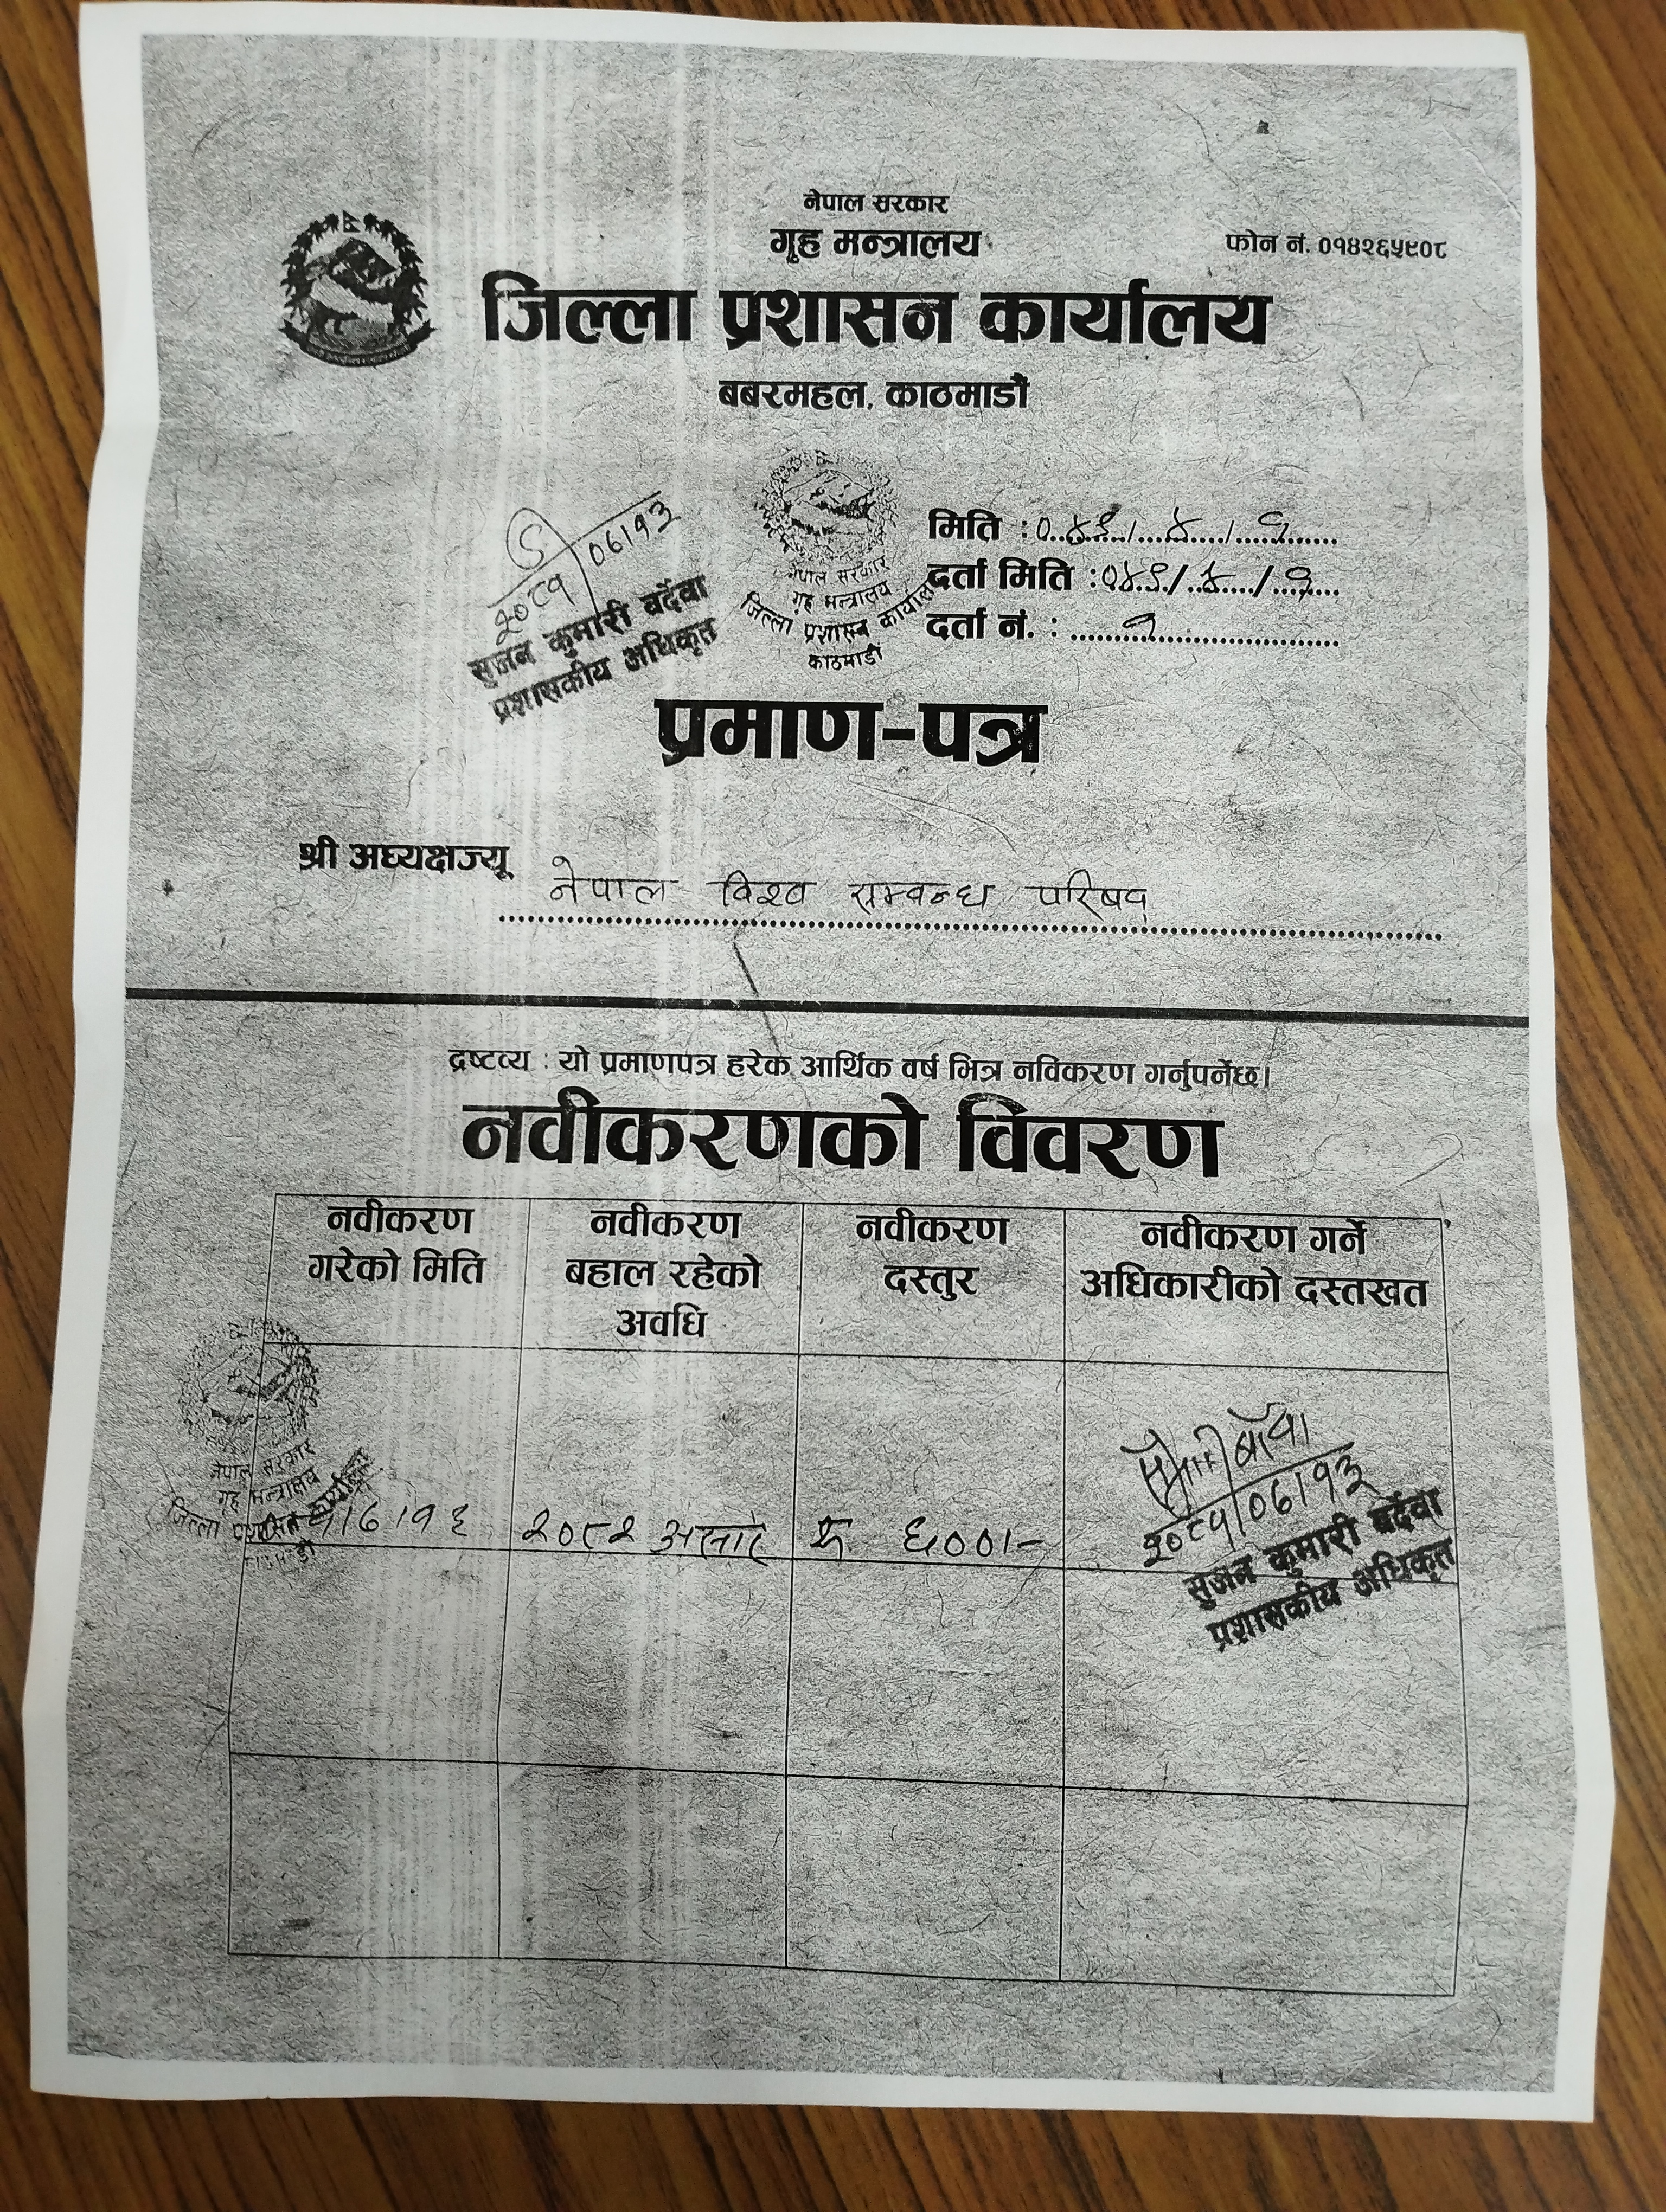 नेपाल सरकार
गृह मन्त्रालय
फोन नं. ०१४२६५९०८
जिल्ला प्रशासन कार्यालय
बबरमहल, काठमाडौं
नेपाल सरकार
गृह मन्त्रालय
जिल्ला प्रशासन कार्यालय
काठमाडौं
मिति :
दर्ता मिति :
दर्ता नं. : १
२०८१/०६/१३
सुजन कुमारी वदेवा
प्रशासकीय अधिकृत
प्रमाण-पत्र
श्री अध्यक्षज्यू
नेपाल विश्व सम्बन्ध परिषद्
द्रष्टव्य : यो प्रमाणपत्र हरेक आर्थिक वर्ष भित्र नविकरण गर्नुपर्नेछ।
नवीकरणको विवरण
नवीकरण गरेको मिति
नवीकरण बहाल रहेको अवधि
नवीकरण दस्तुर
नवीकरण गर्ने अधिकारीको दस्तखत
नेपाल सरकार
गृह मन्त्रालय
जिल्ला प्रशासन कार्यालय
२०८२ असार
रु ६००।-
२०८१/०६/१३
सुजन कुमारी वदेवा
प्रशासकीय अधिकृत